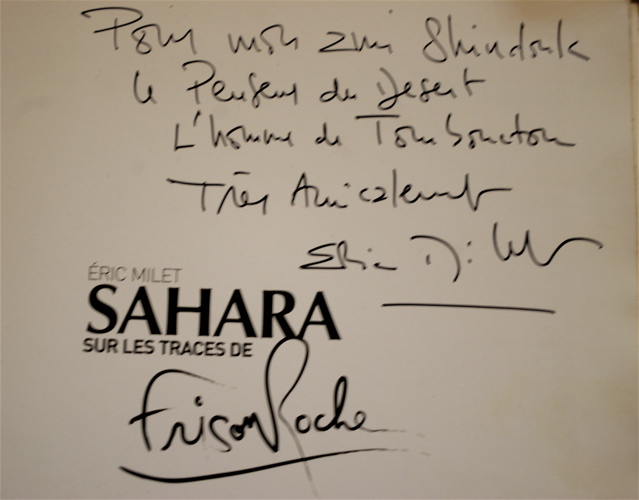 Pour mon ami Shindouk
le Penseur du Desert
L'homme de Tombouctou
Très Amicalement
Eric Milet
ÉRIC MILET
SAHARA
SUR LES TRACES DE
Frison Roche